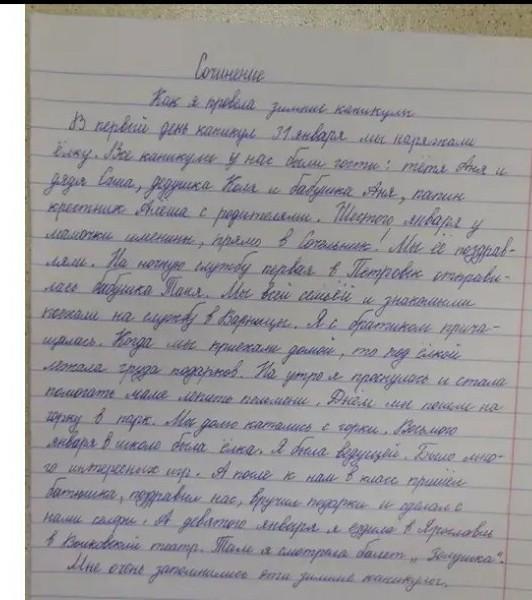 Сочинение
Как я провела зимние каникулы
В первый день каникул 31 января мы наряжали
ёлку. Все каникулы у нас были гости: тётя Аня и
дядя Саша, дедушка Коля и бабушка Аня, папин
крестник Алеша с родителями. Шестого января у
мамочки именины, прямо в Сочельник! Мы её поздрав-
ляли. На ночную службу первая в Петровск отправи-
лась бабушка Таня. Мы всей семьёй и знакомыми
поехали на службу в Варницы. Я с братиком прича-
щалась. Когда мы приехали домой, то под ёлкой
лежала груда подарков. На утро я проснулась и стала
помогать маме лепить пельмени. Днём мы пошли на
горку в парк. Мы долго катались с горки. Восьмого
января в школе была ёлка. Я была ведущей. Было мно-
го интересных игр. А после к нам в класс пришёл
батюшка, поздравил нас, вручил подарки и сделал с
нами селфи. А девятого января я ездила в Ярославль
в Волковский театр. Там я смотрела балет „Золушка".
Мне очень запомнились эти зимние каникулы.